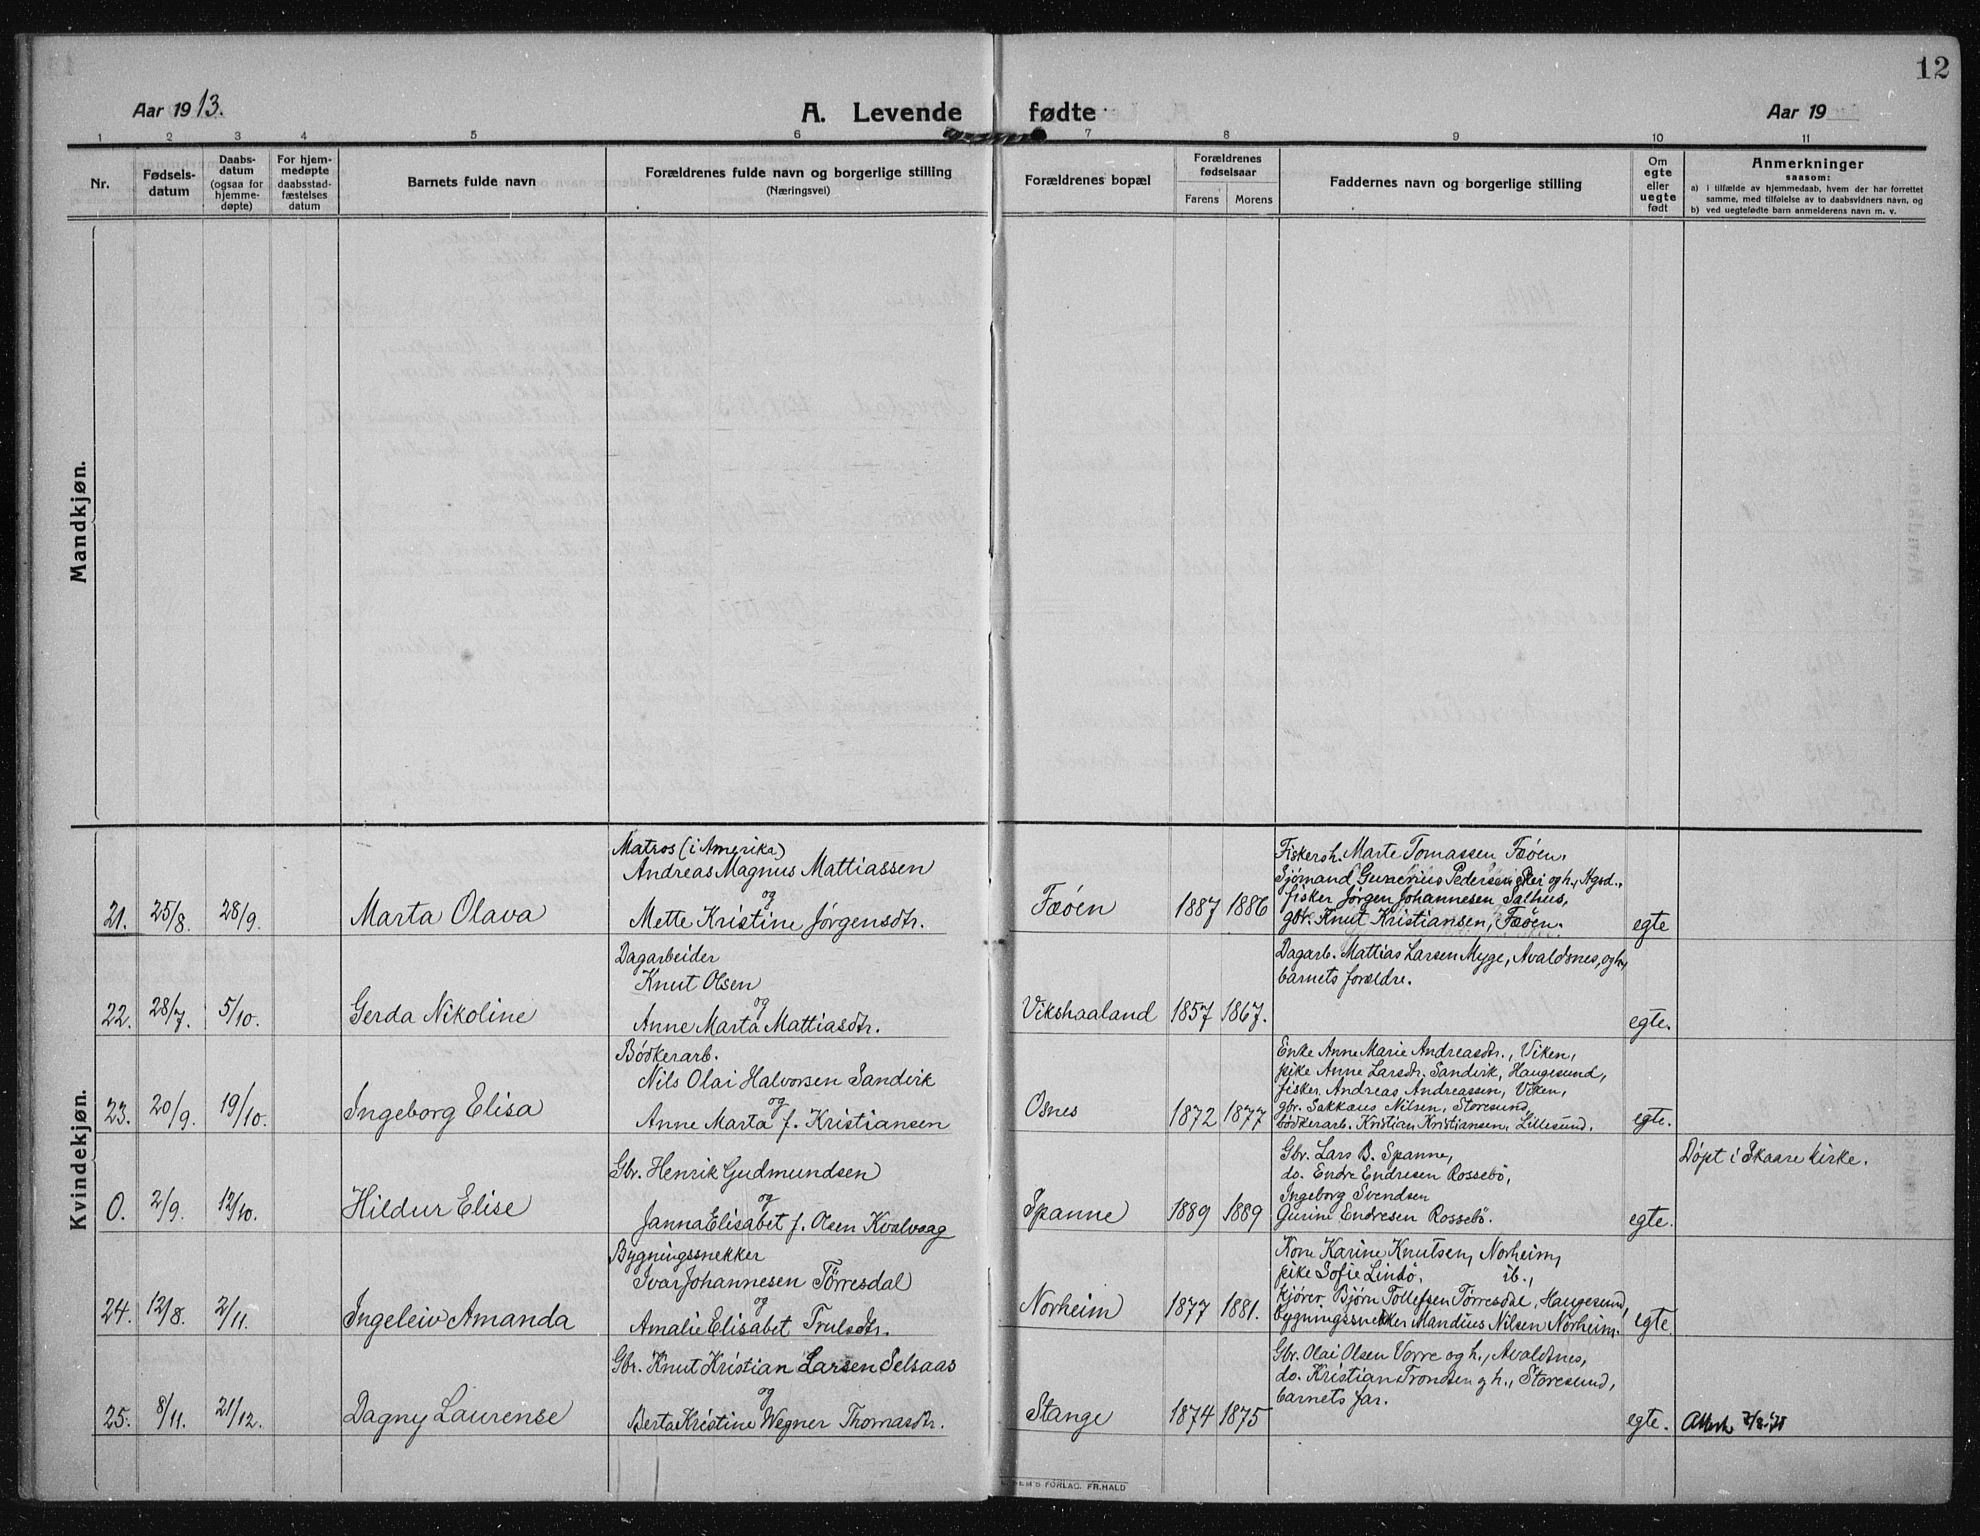 12
Aar 1913.
A. Levende fødte
Aar 19
1 2 3 4 5 6 7 8 9 10 11
Nr.
Fødsels-
datum
Daabs-
datum
(ogsaa for
hjemme-
døpte)
For hjem-
medøpte
daabsstad-
fæstelses
datum
Barnets fulde navn
Forældrenes fulde navn og borgerlige stilling
(Næringsvei)
Forældrenes bopæl
Forældrenes
fødselsaar
Farens Morens
Faddernes navn og borgerlige stilling
Om
egte
eller
uegte
født
Anmerkninger
saasom:
a) i tilfælde av hjemmedaab, hvem der har forrettet
samme, med tilføielse av to daabsvidners navn, og
b) ved uegtefødte barn anmelderens navn m. v.
Mandkjøn.
Kvindekjøn.
21. 25/8. 28/9. Marta Olava
Matros (i Amerika)
Andreas Magnus Mattiassen
og
Mette Kristine Jörgensdtr.
Fæöen 1887 1886
Fiskersh. Marte Tomassen Fæöen.
Sjömand Gunerius Pedersen og h., Hgsd.,
fisker Jörgen Johannesen Salhus,
gbr. Knut Kristiansen, Fæöen.
egte
22. 28/7. 5/10. Gerda Nikoline
Dagarbeider
Knut Olsen
og
Anne Marta Mattiasdtr.
Vikshaaland 1857 1867.
Dagarb. Mattias Larsen Myge, Avaldsnes, og h.,
barnets forældre.
egte.
23. 20/9. 19/10. Ingeborg Elisa
Bödkerarb.
Nils Olai Halvorsen Sandvik
og
Anne Marta f. Kristiansen
Osnes 1872 1877
Enke Anne Marie Andreasdtr., Viken,
pike Anne Larsdtr. Sandvik, Haugesund,
fisker Andreas Andreassen, Viken,
gbr. Sakkæus Nilsen, Storesund,
bödkerarb. Kristian Kristiansen, Lillesund.
egte.
0. 2/9. 12/10. Hildur Elise
Gbr. Henrik Gudmundsen
og
Janna Elisabet f. Olsen Kvalvaag
Spanne 1889 1889
Gbr. Lars B. Spanne,
do. Endre Endresen Rossebö,
Ingeborg Svendsen
Gurine Endresen Rossebö.
egte.
Döpt i Skaare kirke.
24. 12/8. 2/11. Ingeleiv Amanda
Bygningssnekker
Ivar Johannesen Törresdal
og
Amalie Elisabet Trulsdtr.
Norheim 1877 1881.
Kone Karine Knutsen, Norheim,
pike Sofie Lindö. ib.,
kjörer Bjørn Tollefsen Törresdal, Haugesund,
bygningssnekker Mandius Nilsen Norheim.
egte.
25. 8/11. 21/12. Dagny Laurense
Gbr. Knut Kristian Larsen Selsaas
og
Berta Kristine Wegner Thomasdtr.
Stange 1874 1875
Gbr. Olai Olsen Vorre og h., Avaldsnes,
do. Kristian Trondsen og h., Storesund,
barnets far.
egte.
FORLAG. FR. HALD